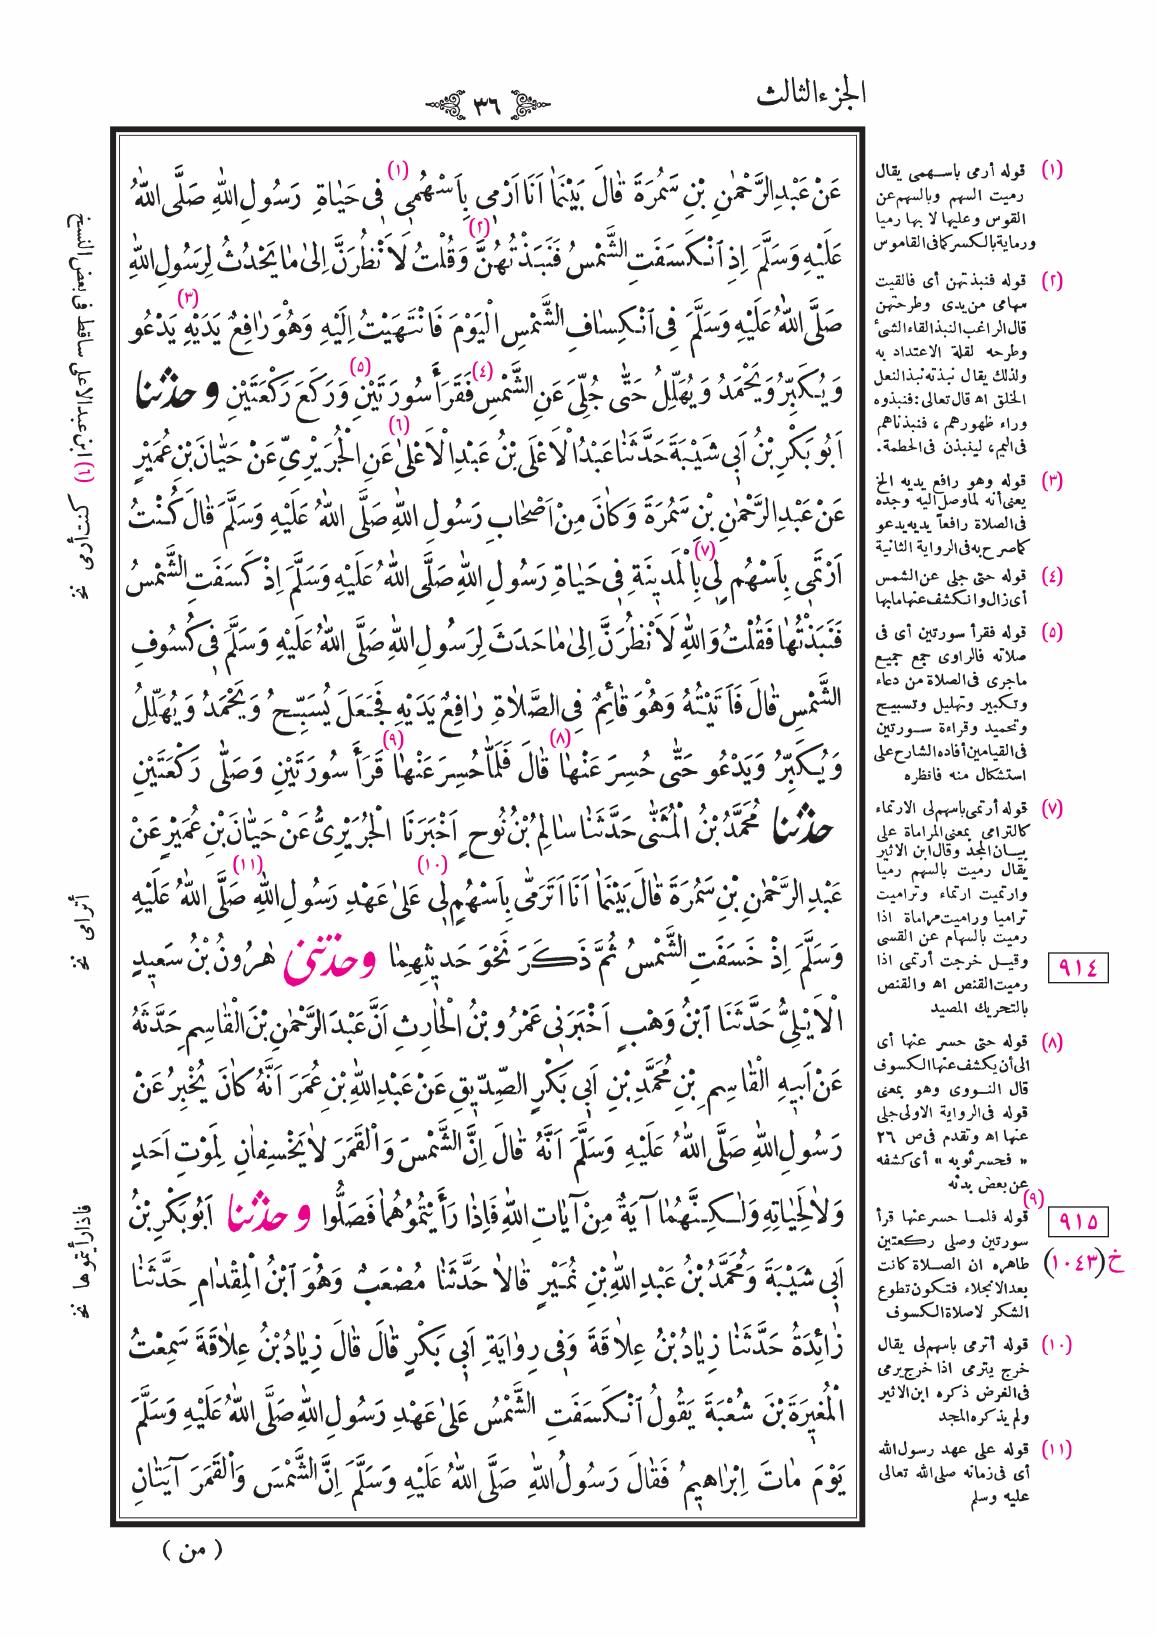 الجزء الثالث
٣٦
عَنْ عَبْدِ الرَّحْمٰنِ بْنِ سَمُرَةَ قَالَ بَيْنَمَا اَنَا اَرْمِى بِاَسْهُمِى (١) فِى حَيَاةِ رَسُولِ اللهِ صَلَّى اللهُ
عَلَيْهِ وَسَلَّمَ اِذِ انْكَسَفَتِ الشَّمْسُ فَنَبَذْتُهُنَّ (٢) وَقُلْتُ لَاَنْظُرَنَّ اِلىٰ مَا يَحْدُثُ لِرَسُولِ اللهِ
صَلَّى اللهُ عَلَيْهِ وَسَلَّمَ فِى انْكِسَافِ الشَّمْسِ الْيَوْمَ فَانْتَهَيْتُ اِلَيْهِ وَهُوَ رَافِعٌ يَدَيْهِ (٣) يَدْعُو
وَيُكَبِّرُ وَيَحْمَدُ وَيُهَلِّلُ حَتّٰى جُلِّىَ عَنِ الشَّمْسِ (٤) فَقَرَأَ سُورَتَيْنِ (٥) وَرَكَعَ رَكْعَتَيْنِ وحدثنا
اَبُو بَكْرِ بْنُ اَبِى شَيْبَةَ حَدَّثَنَا عَبْدُ الْاَعْلَى بْنُ عَبْدِ الْاَعْلىٰ (٦) عَنِ الْجُرَيْرِىِّ عَنْ حَيَّانَ بْنِ عُمَيْرٍ
عَنْ عَبْدِ الرَّحْمٰنِ بْنِ سَمُرَةَ وَكَانَ مِنْ اَصْحَابِ رَسُولِ اللهِ صَلَّى اللهُ عَلَيْهِ وَسَلَّمَ قَالَ كُنْتُ
اَرْتَمِى بِاَسْهُمٍ لِى (٧) بِالْمَدِينَةِ فِى حَيَاةِ رَسُولِ اللهِ صَلَّى اللهُ عَلَيْهِ وَسَلَّمَ اِذْ كَسَفَتِ الشَّمْسُ
فَنَبَذْتُهَا فَقُلْتُ وَاللهِ لَاَنْظُرَنَّ اِلىٰ مَا حَدَثَ لِرَسُولِ اللهِ صَلَّى اللهُ عَلَيْهِ وَسَلَّمَ فِى كُسُوفِ
الشَّمْسِ قَالَ فَاَتَيْتُهُ وَهُوَ قَائِمٌ فِى الصَّلَاةِ رَافِعٌ يَدَيْهِ فَجَعَلَ يُسَبِّحُ وَيَحْمَدُ وَيُهَلِّلُ
وَيُكَبِّرُ وَيَدْعُو حَتّٰى حُسِرَ عَنْهَا (٨) قَالَ فَلَمَّا حُسِرَ عَنْهَا (٩) قَرَأَ سُورَتَيْنِ وَصَلَّى رَكْعَتَيْنِ
حدثنا مُحَمَّدُ بْنُ الْمُثَنّٰى حَدَّثَنَا سَالِمُ بْنُ نُوحٍ اَخْبَرَنَا الْجُرَيْرِىُّ عَنْ حَيَّانَ بْنِ عُمَيْرٍ عَنْ
عَبْدِ الرَّحْمٰنِ بْنِ سَمُرَةَ قَالَ بَيْنَمَا اَنَا اَتَرَمَّى بِاَسْهُمٍ لِى (١٠) عَلىٰ عَهْدِ رَسُولِ اللهِ (١١) صَلَّى اللهُ عَلَيْهِ
وَسَلَّمَ اِذْ خَسَفَتِ الشَّمْسُ ثُمَّ ذَكَرَ نَحْوَ حَدِيثِهِمَا وحدثنى هٰرُونُ بْنُ سَعِيدٍ
الْاَيْلِىُّ حَدَّثَنَا ابْنُ وَهْبٍ اَخْبَرَنِى عَمْرُو بْنُ الْحَارِثِ اَنَّ عَبْدَ الرَّحْمٰنِ بْنَ الْقَاسِمِ حَدَّثَهُ
عَنْ اَبِيهِ الْقَاسِمِ بْنِ مُحَمَّدِ بْنِ اَبِى بَكْرٍ الصِّدِّيقِ عَنْ عَبْدِ اللهِ بْنِ عُمَرَ اَنَّهُ كَانَ يُخْبِرُ عَنْ
رَسُولِ اللهِ صَلَّى اللهُ عَلَيْهِ وَسَلَّمَ اَنَّهُ قَالَ اِنَّ الشَّمْسَ وَالْقَمَرَ لَا يَخْسِفَانِ لِمَوْتِ اَحَدٍ
وَلَا لِحَيَاتِهِ وَلٰكِنَّهُمَا آيَةٌ مِنْ آيَاتِ اللهِ فَاِذَا رَأَيْتُمُوُهُمَا فَصَلُّوا وحدثنا اَبُو بَكْرِ بْنُ
اَبِى شَيْبَةَ وَمُحَمَّدُ بْنُ عَبْدِ اللهِ بْنِ نُمَيْرٍ قَالَا حَدَّثَنَا مُصْعَبٌ وَهُوَ ابْنُ الْمِقْدَامِ حَدَّثَنَا
زَائِدَةُ حَدَّثَنَا زِيَادُ بْنُ عِلَاقَةَ وَفِى رِوَايَةِ اَبِى بَكْرٍ قَالَ قَالَ زِيَادُ بْنُ عِلَاقَةَ سَمِعْتُ
الْمُغِيرَةَ بْنَ شُعْبَةَ يَقُولُ انْكَسَفَتِ الشَّمْسُ عَلىٰ عَهْدِ رَسُولِ اللهِ صَلَّى اللهُ عَلَيْهِ وَسَلَّمَ
يَوْمَ مَاتَ اِبْرَاهِيمُ فَقَالَ رَسُولُ اللهِ صَلَّى اللهُ عَلَيْهِ وَسَلَّمَ اِنَّ الشَّمْسَ وَالْقَمَرَ آيَتَانِ
( من )
(١) قوله أرمى باسهمى يقال
رميت السهم وبالسهم عن
القوس وعليها لا بها رميا
ورماية بالكسر كما فى القاموس
(٢) قوله فنبذتهن أى فالقيت
سهامى من يدى وطرحتهن
قال الراغب النبذ القاء الشئ
وطرحه لقلة الاعتداد به
ولذلك يقال نبذته نبذ النعل
الخلق اه قال تعالى: فنبذوه
وراء ظهورهم ، فنبذناهم
فى اليم، لينبذن فى الحطمة.
(٣) قوله وهو رافع يديه الخ
يعنى أنه لما وصل اليه وجده
فى الصلاة رافعاً يديه يدعو
كما صرح به فى الرواية الثانية
(٤) قوله حتى جلى عن الشمس
أى زال وانكشف عنها ما بها
(٥) قوله فقرأ سورتين أى فى
صلاته فالراوى جمع جميع
ماجرى فى الصلاة من دعاء
وتكبير وتهليل وتسبيح
وتحميد وقراءة سورتين
فى القيامين أفاده الشارح على
استشكال منه فانظره
(٧) قوله أرتمى باسهم لى الارتماء
كالترامى بمعنى المراماة على
بيان المجد وقال ابن الاثير
يقال رميت بالسهم رميا
وارتميت ارتماء وتراميت
تراميا وراميت مراماة اذا
رميت بالسهام عن القسى
وقيل خرجت أرتمى اذا
رميت القنص اه والقنص
بالتحريك المصيد
(٨) قوله حتى حسر عنها أى
الى أن يكشف عنها الكسوف
قال النووى وهو بمعنى
قوله فى الرواية الاولى جلى
عنها اه وتقدم فى ص ٢٦
« فحسر ثوبه » أى كشفه
عن بعض بدنه
(٩) قوله فلما حسر عنها قرأ
سورتين وصلى ركعتين
ظاهره ان الصلاة كانت
بعد الانجلاء فتكون تطوع
الشكر لا صلاة الكسوف
(١٠) قوله أترمى باسهم لى يقال
خرج يترمى اذا خرج يرمى
فى الغرض ذكره ابن الاثير
ولم يذكره المجد
(١١) قوله على عهد رسول الله
أى فى زمانه صلى الله تعالى
عليه وسلم
٩١٤
٩١٥
خ (١٠٤٣)
(٦) ابن عبد الاعلى ساقط فى بعض النسخ
كنت أرمى نخ
أترامى نخ
فاذا رأيتموها نخ